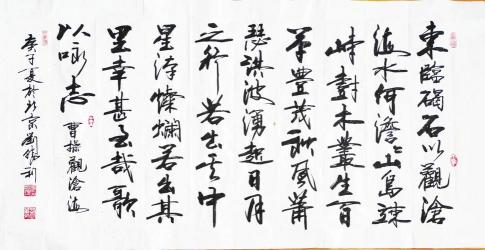 東臨碣石以觀滄
海水何澹々山島竦
峙樹木叢生百
草豐茂秋風蕭
瑟洪波湧起日月
之行若出其中
星漢燦爛若出其
里幸甚至哉歌
以咏志
曹操觀滄海
庚子夏於北京劉利